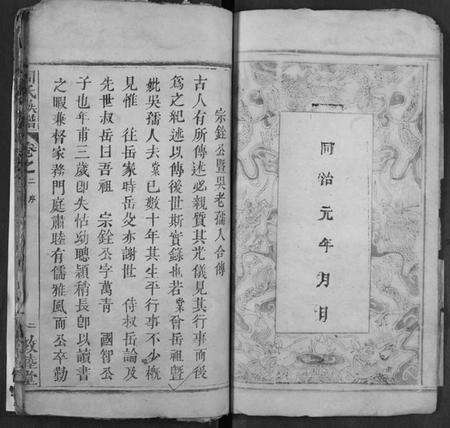 同治元年 月 日
宗銓公暨吳老孺人合傳
古人有所傳述必親質其光儀見其行事而後
為之紀述以傳後世斯實錄也若 業 岳祖暨
妣吳孺人去 業 已數十年其生平行事不少概
見惟 往岳家時岳父亦謝世 侍叔岳論及
先世叔岳曰吾祖 宗銓公字萬青 國智公
子也年甫三歲即失怙幼聰穎稍長即以讀書
之暇兼督家務門庭肅睦有儒雅風而公卒勤
氏族譜
卷之二 序
二
敦睦堂